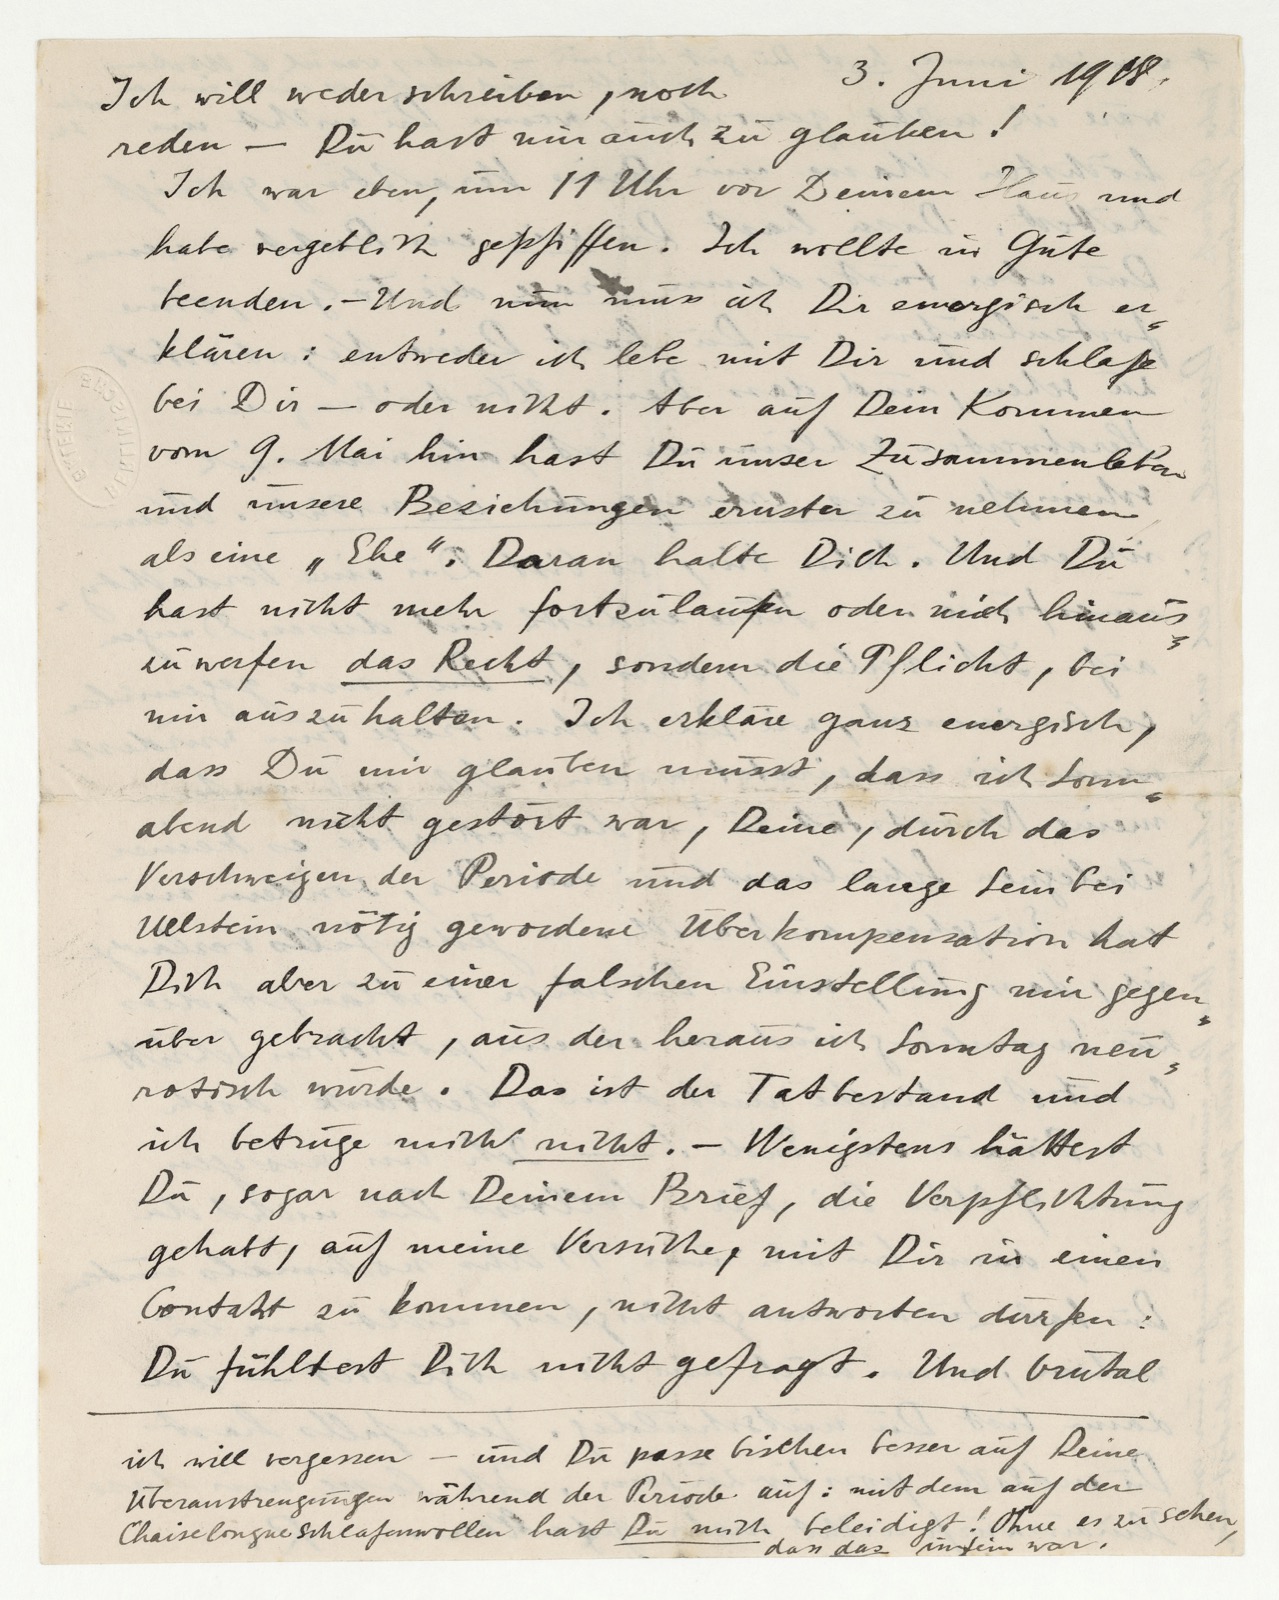 3. Juni 1918.
Ich will weder schreiben, noch
reden — Du hast mir auch zu glauben!
Ich war eben, um 11 Uhr vor Deinem Haus und
habe vergeblich gepfiffen. Ich wollte in Güte
beenden. — Und nun muss ich Dir energisch er„
klären: entweder ich lebe mit Dir und schlafe
bei Dir — oder nicht. Aber auf Dein Kommen
vom 9. Mai hin hast Du unser Zusammenleben
und unsere Beziehungen ernster zu nehmen
als eine „Ehe“. Daran halte Dich. Und Du
hast nicht mehr fortzulaufen oder mich hinaus„
zuwerfen das Recht, sondern die Pflicht, bei
mir auszuhalten. Ich erkläre ganz energisch,
dass Du mir glauben musst, dass ich Sonn„
abend nicht gestört war, Deine, durch das
Verschweigen der Periode und das lange Sein bei
Ullstein nötig gewordene Überkompensation hat
Dich aber zu einer falschen Einstellung mir gegen„
über gebracht, aus der heraus ich Sonntag neu„
rotisch wurde. Das ist der Tatbestand und
ich betrüge mich nicht. — Wenigstens hättest
Du, sogar nach Deinem Brief, die Verpflichtung
gehabt, auf meine Versuche, mit Dir in einen
Contakt zu kommen, nicht antworten dürfen:
Du fühltest Dich nicht gefragt. Und brutal
ich will vergessen — und Du passe bischen besser auf Deine
Überanstrengungen während der Periode auf: mit dem auf der
Chaiselongue Schlafenwollen hast Du mich beleidigt! Ohne es zu sehen,
dass das infam war.
BERLINISCHE
GALERIE